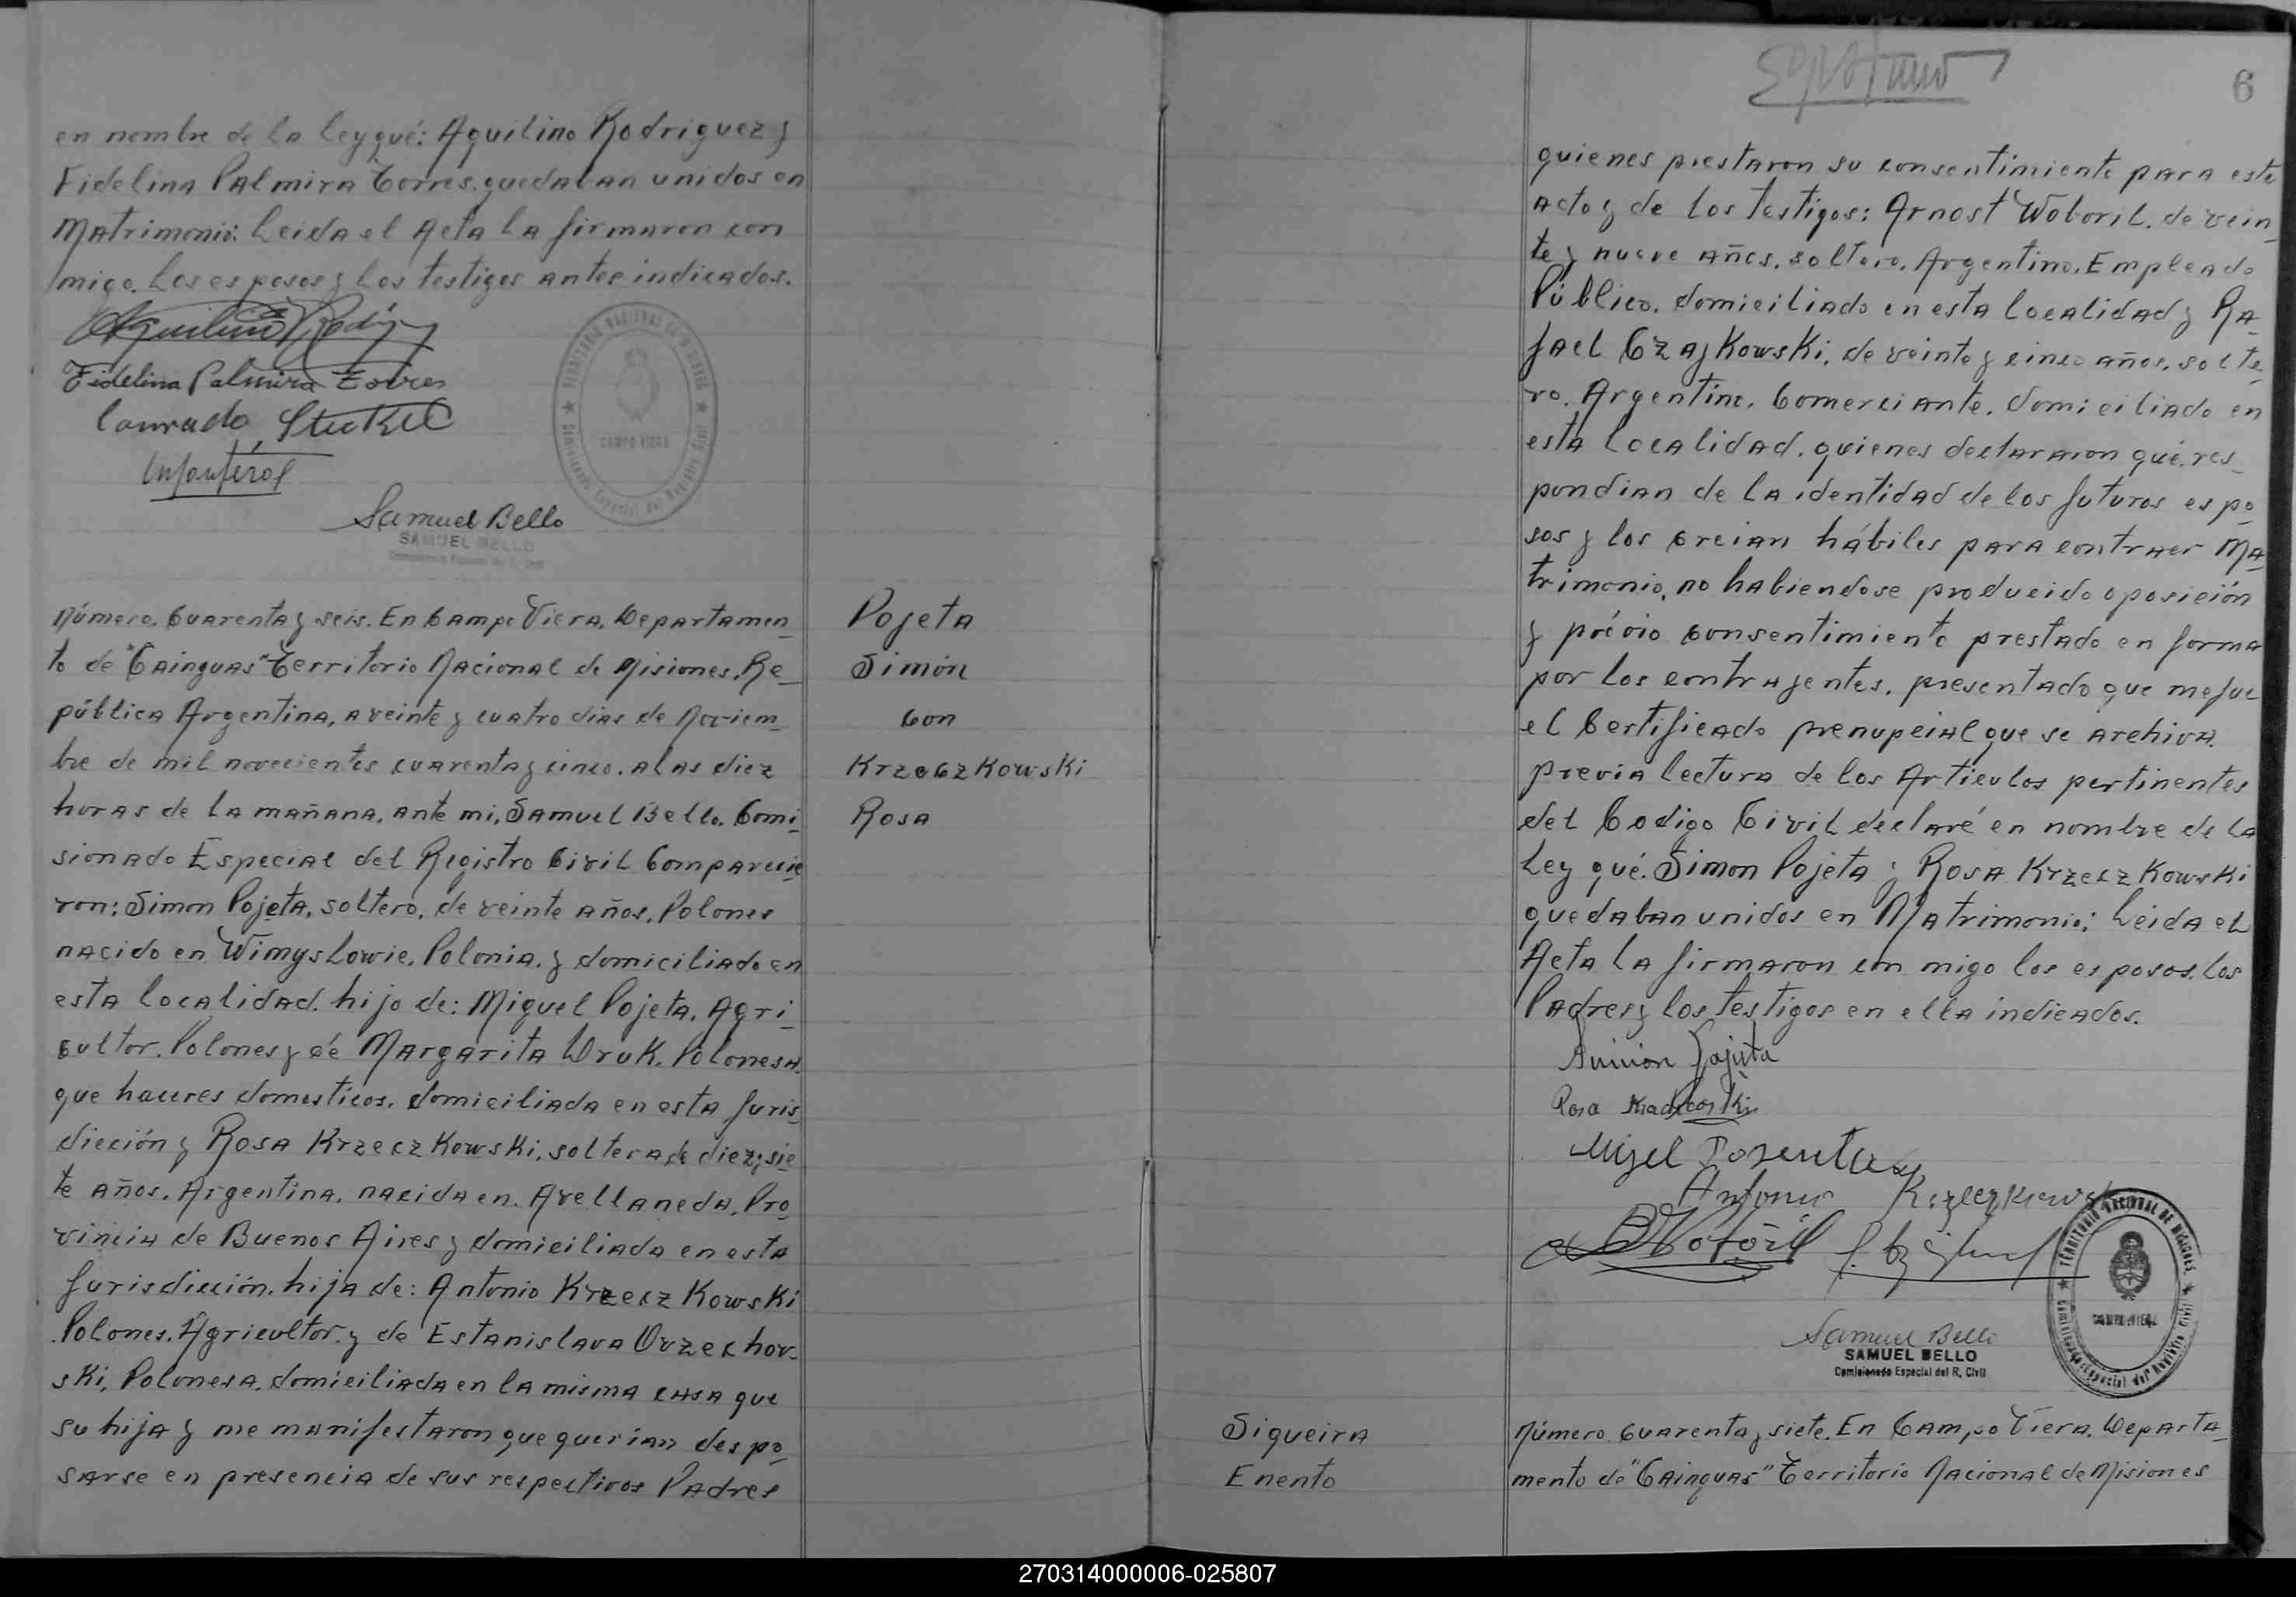 en nombre de la Ley qué: Aquilino Rodriguez y
Fidelina Palmira Torres. quedaban unidos en
Matrimonio: Leida el Acta la firmaron con
migo. Los esposos y los testigos antes indicados.
Fidelina Palmira Torres
Conrado
Samuel Bello
SAMUEL BELLO
CAMPO VIERA
Número. Cuarenta y seis. En Campo Viera, Departamen_
to de "Cainguas" Territorio Nacional de Misiones, Re_
pública Argentina, a veinte y cuatro dias de Noviem_
bre de mil novecientos cuarenta y cinco. a las diez
horas de la mañana, ante mi, Samuel Bello. Comi_
sionado Especial del Registro Civil Comparecie
ron: Simon Pojeta, soltero, de veinte años, Polones
nacido en Wimyslowie, Polonia, y domiciliado en
esta localidad. hijo de: Miguel Pojeta, Agri_
cultor. Polones y de Margarita Wruk, Polonesa.
que haceres domesticos. domiciliada en esta Juris
dicción y Rosa Krzeczkowski, soltera de diez y sie
te años, Argentina, nacida en. Avellaneda, Pro
vincia de Buenos Aires y domiciliada en esta
Jurisdicción, hija de: Antonio Krzeczkowski
Polones. Agricultor. y de Estanislava Orzechov_
ski, Polonesa, domiciliada en la misma casa que
su hija y me manifestaron que querian despo_
sarse en presencia de sus respectivos Padres
Pojeta
Simón
Con
Krzeczkowski
Rosa
6
quienes prestaron su consentimiento para este
acto y de los testigos: Arnost Woboril. de vein_
te y nueve años. soltero. Argentino. Empleado
Público. domiciliado en esta localidad y Ra_
fael Czajkowski, de veinte y cinco años, solte_
ro. Argentino. Comerciante. domiciliado en
esta localidad. quienes declararon qué. res_
pondian de la identidad de los futuros espo_
sos y los creian hábiles para contraer Ma_
trimonio, no habiendose producido oposición
y prévio consentimiento prestado en forma
por los contrajentes, presentado que me fue
el Certificado prenupcial que se archiva.
previa lectura de los Articulos pertinentes
del Codigo Civil declaré en nombre de la
Ley qué. Simon Pojeta y Rosa Krzeczkowski
quedaban unidos en Matrimonio; Leida el
Acta la firmaron con migo los esposos, los
Padres y los testigos en ella indicados.
Rosa
Antonio
Samuel Bello
SAMUEL BELLO
Comisionado Especial del R. Civil
TERRITORIO NACIONAL DE MISIONES
Comisionado Especial del Registro Civil
CAMPO VIERA
Siqueira
Enento
Número. Cuarenta y siete. En Campo Viera. Departa_
mento de "Cainguas" Territorio Nacional de Misiones
270314000006-025807